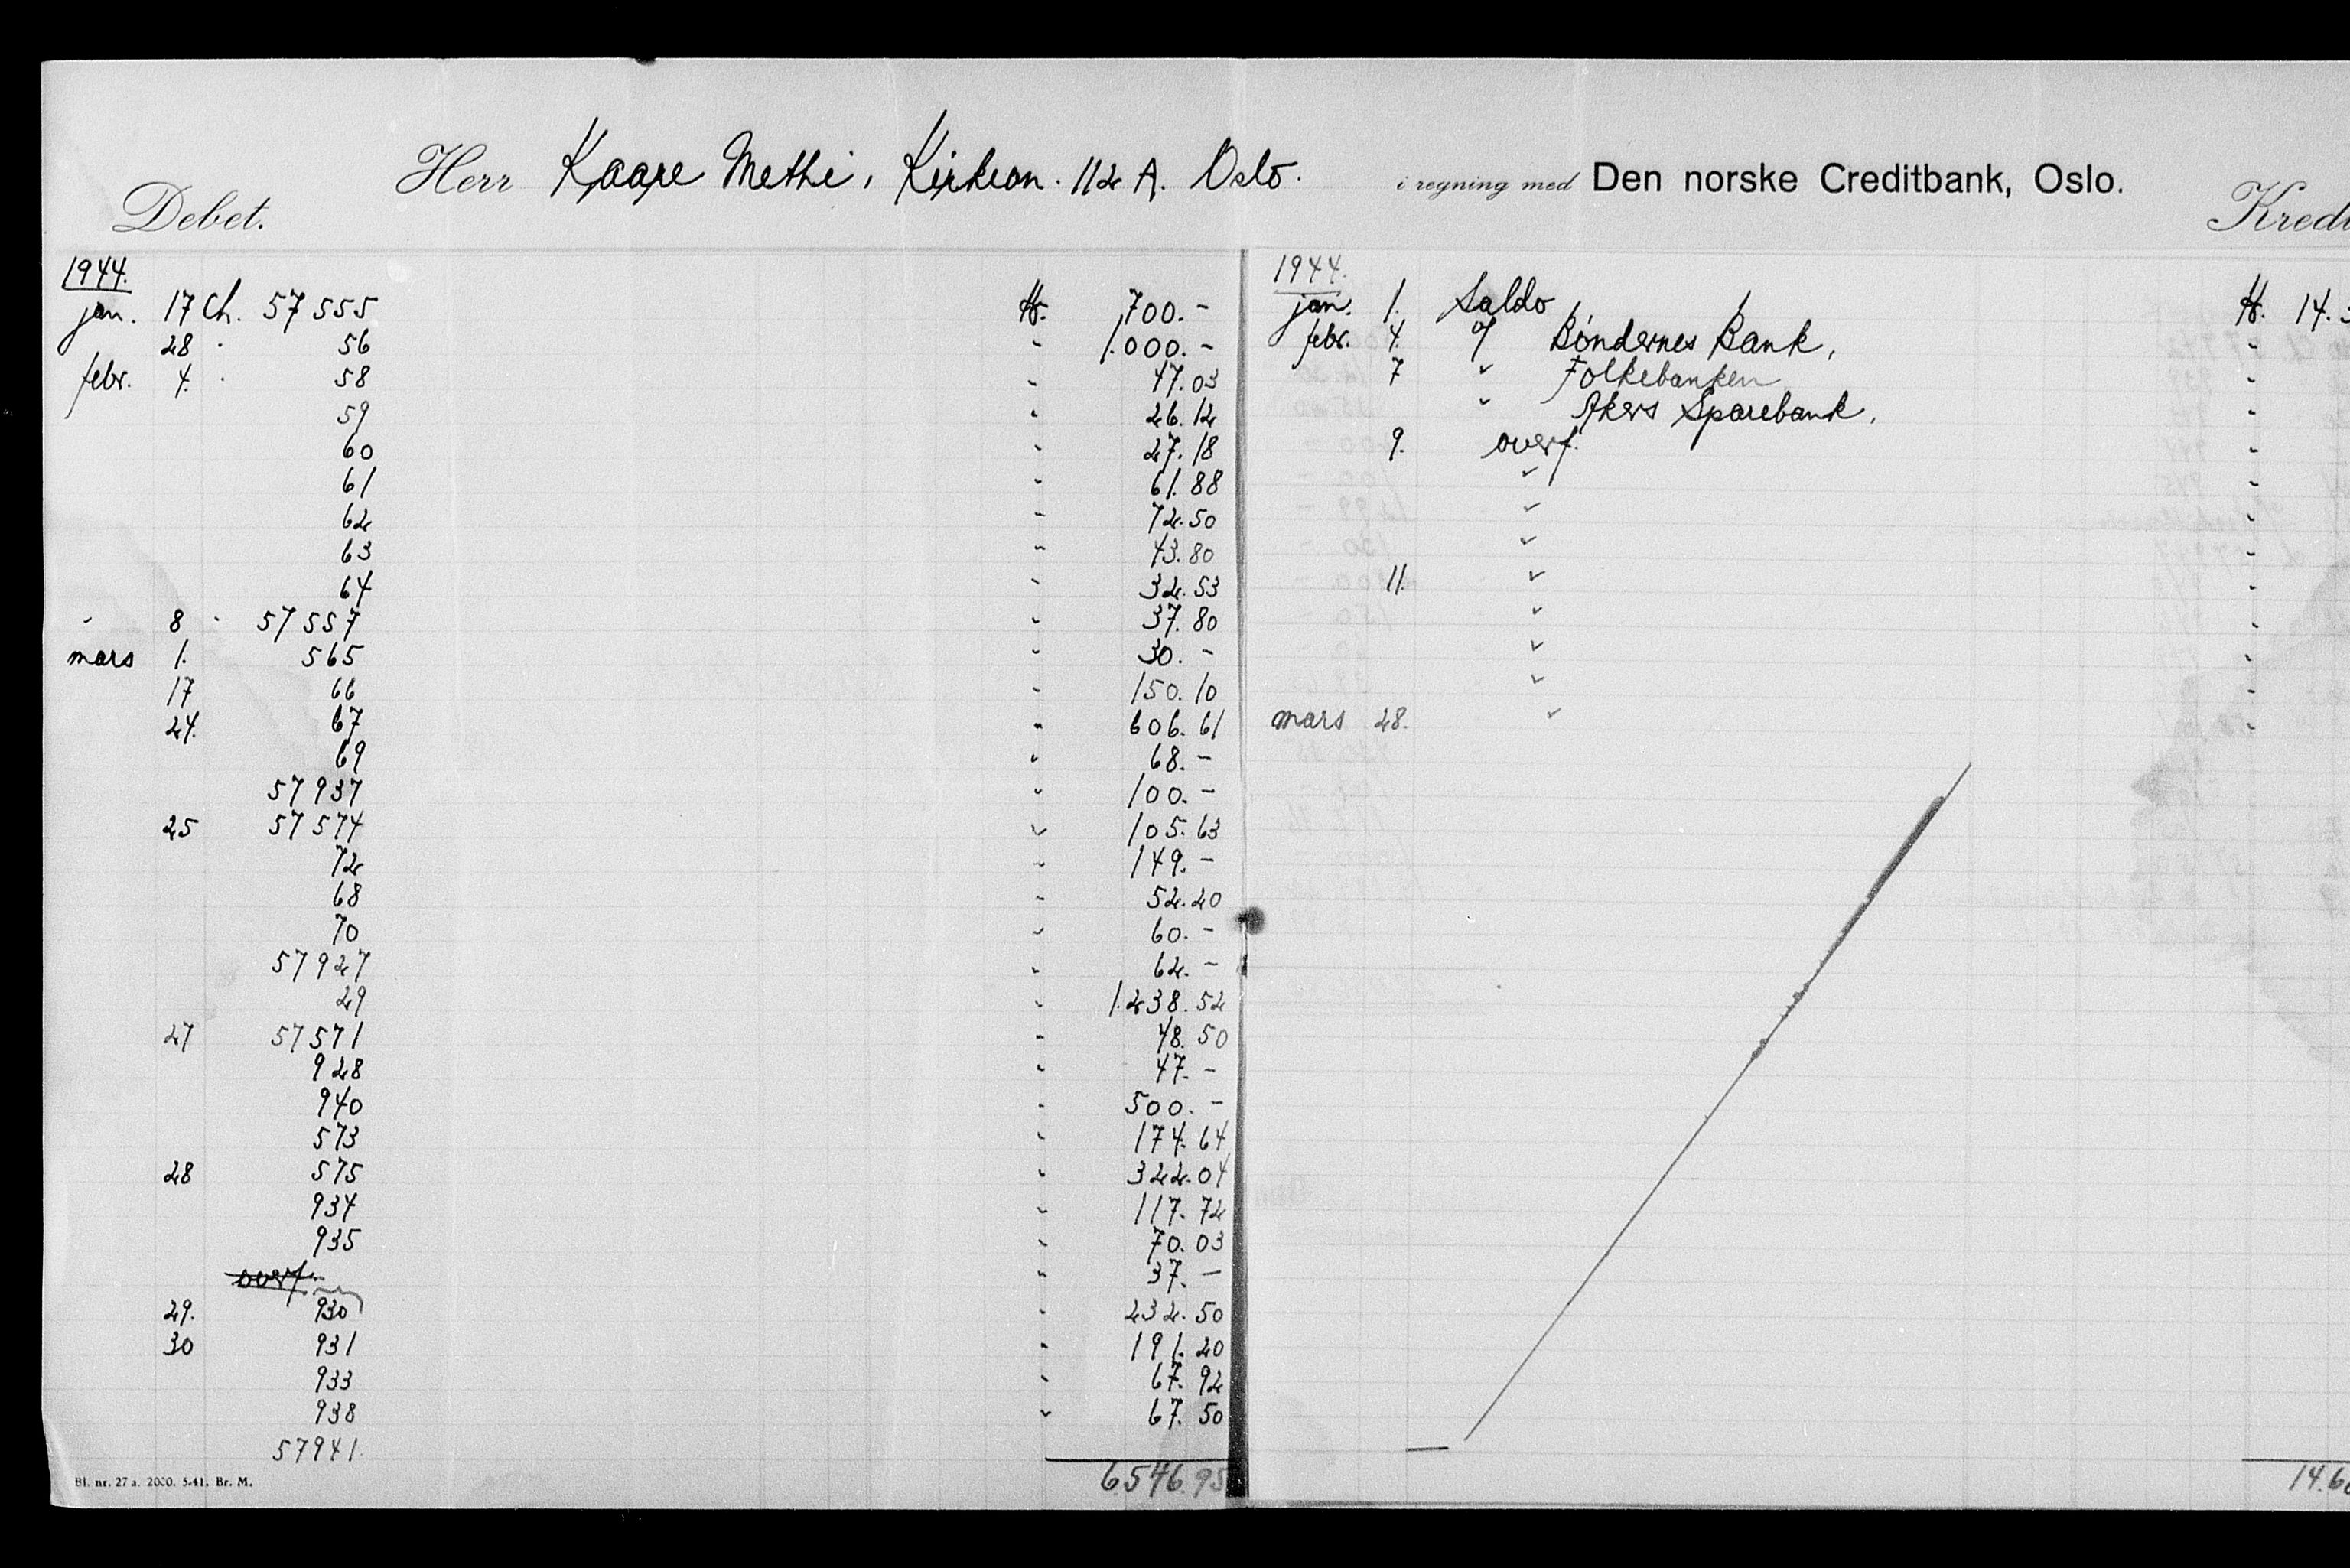 Debet. Herr Kaare Methi, Kirkevn. 112 A. Oslo. i regning med Den norske Creditbank, Oslo. Kred
1944.
jan. 17 Ch. 57555 Kr. 700.-
28 " 56 " 1.000.-
febr. 4. " 58 " 47.03
59 " 26.12
60 " 27.18
61 " 61.88
62 " 72.50
63 " 43.80
64 " 32.53
" 8 " 57557 " 37.80
mars 1. 565 " 30.-
17 66 " 150.10
24. 67 " 606.61
69 " 68.-
57937 " 100.-
25 57574 " 105.63
72 " 149.-
68 " 52.20
70 " 60.-
57927 " 62.-
29 " 1.238.52
27 57571 " 48.50
928 " 47.-
940 " 500.-
573 " 174.64
28 575 " 322.04
934 " 117.72
935 " 70.03
overf. " 37.-
29. 930 " 232.50
30 931 " 191.20
933 " 67.92
938 " 67.50
57941
6546.95
Bl. nr. 27 a. 2000. 5-41. Br. M.
1944.
jan. 1. Saldo Kr. 14.
febr. 4. Bøndernes Bank, "
7 " Folkebanken "
" Akers Sparebank, "
9. overf. "
" "
" "
" "
11. " "
" "
" "
" "
mars 28. " "
14.6